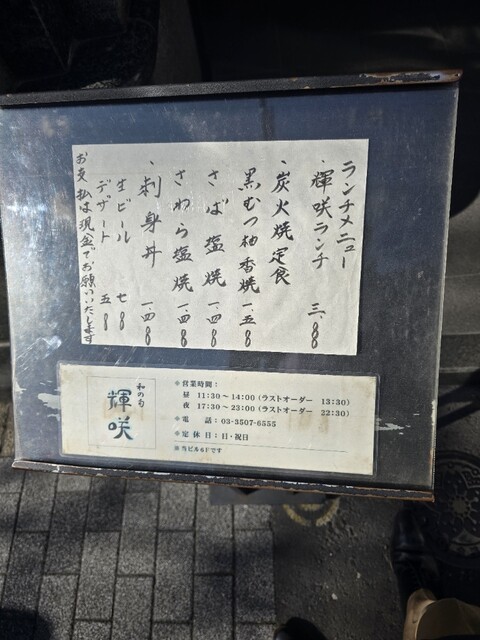 ランチメニュー
・輝咲ランチ 三、〇〇
・炭火焼定食
黒むつ柚香焼 一、五〇
さば塩焼 一、四〇
さわら塩焼 一、四〇
・刺身丼 一、四〇
生ビール 七〇
デザート 五〇
お支払は現金でお願いいたします
和の旬
輝咲
※営業時間：
昼 11:30～14:00（ラストオーダー 13:30）
夜 17:30～23:00（ラストオーダー 22:30）
※電 話：03-3507-6555
※定休日：日・祝日
※当ビル6Fです